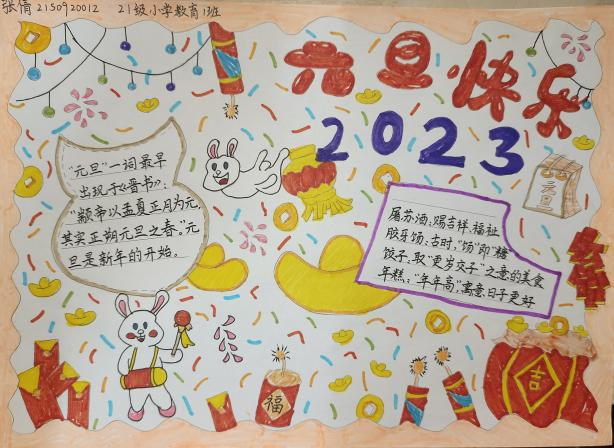 张倩 2150920012 21级小学教育1班
元旦快乐
2023
"元旦"一词最早
出现于《晋书》:
"颛帝以孟夏正月为元,
其实正朔元旦之春。"元
旦是新年的开始。
元旦
屠苏酒:赐吉祥、福祉
胶牙饧:古时,"饧"即"糖"
饺子:取"更岁交子"之意的美食
年糕:"年年高",寓意日子更好
福
吉